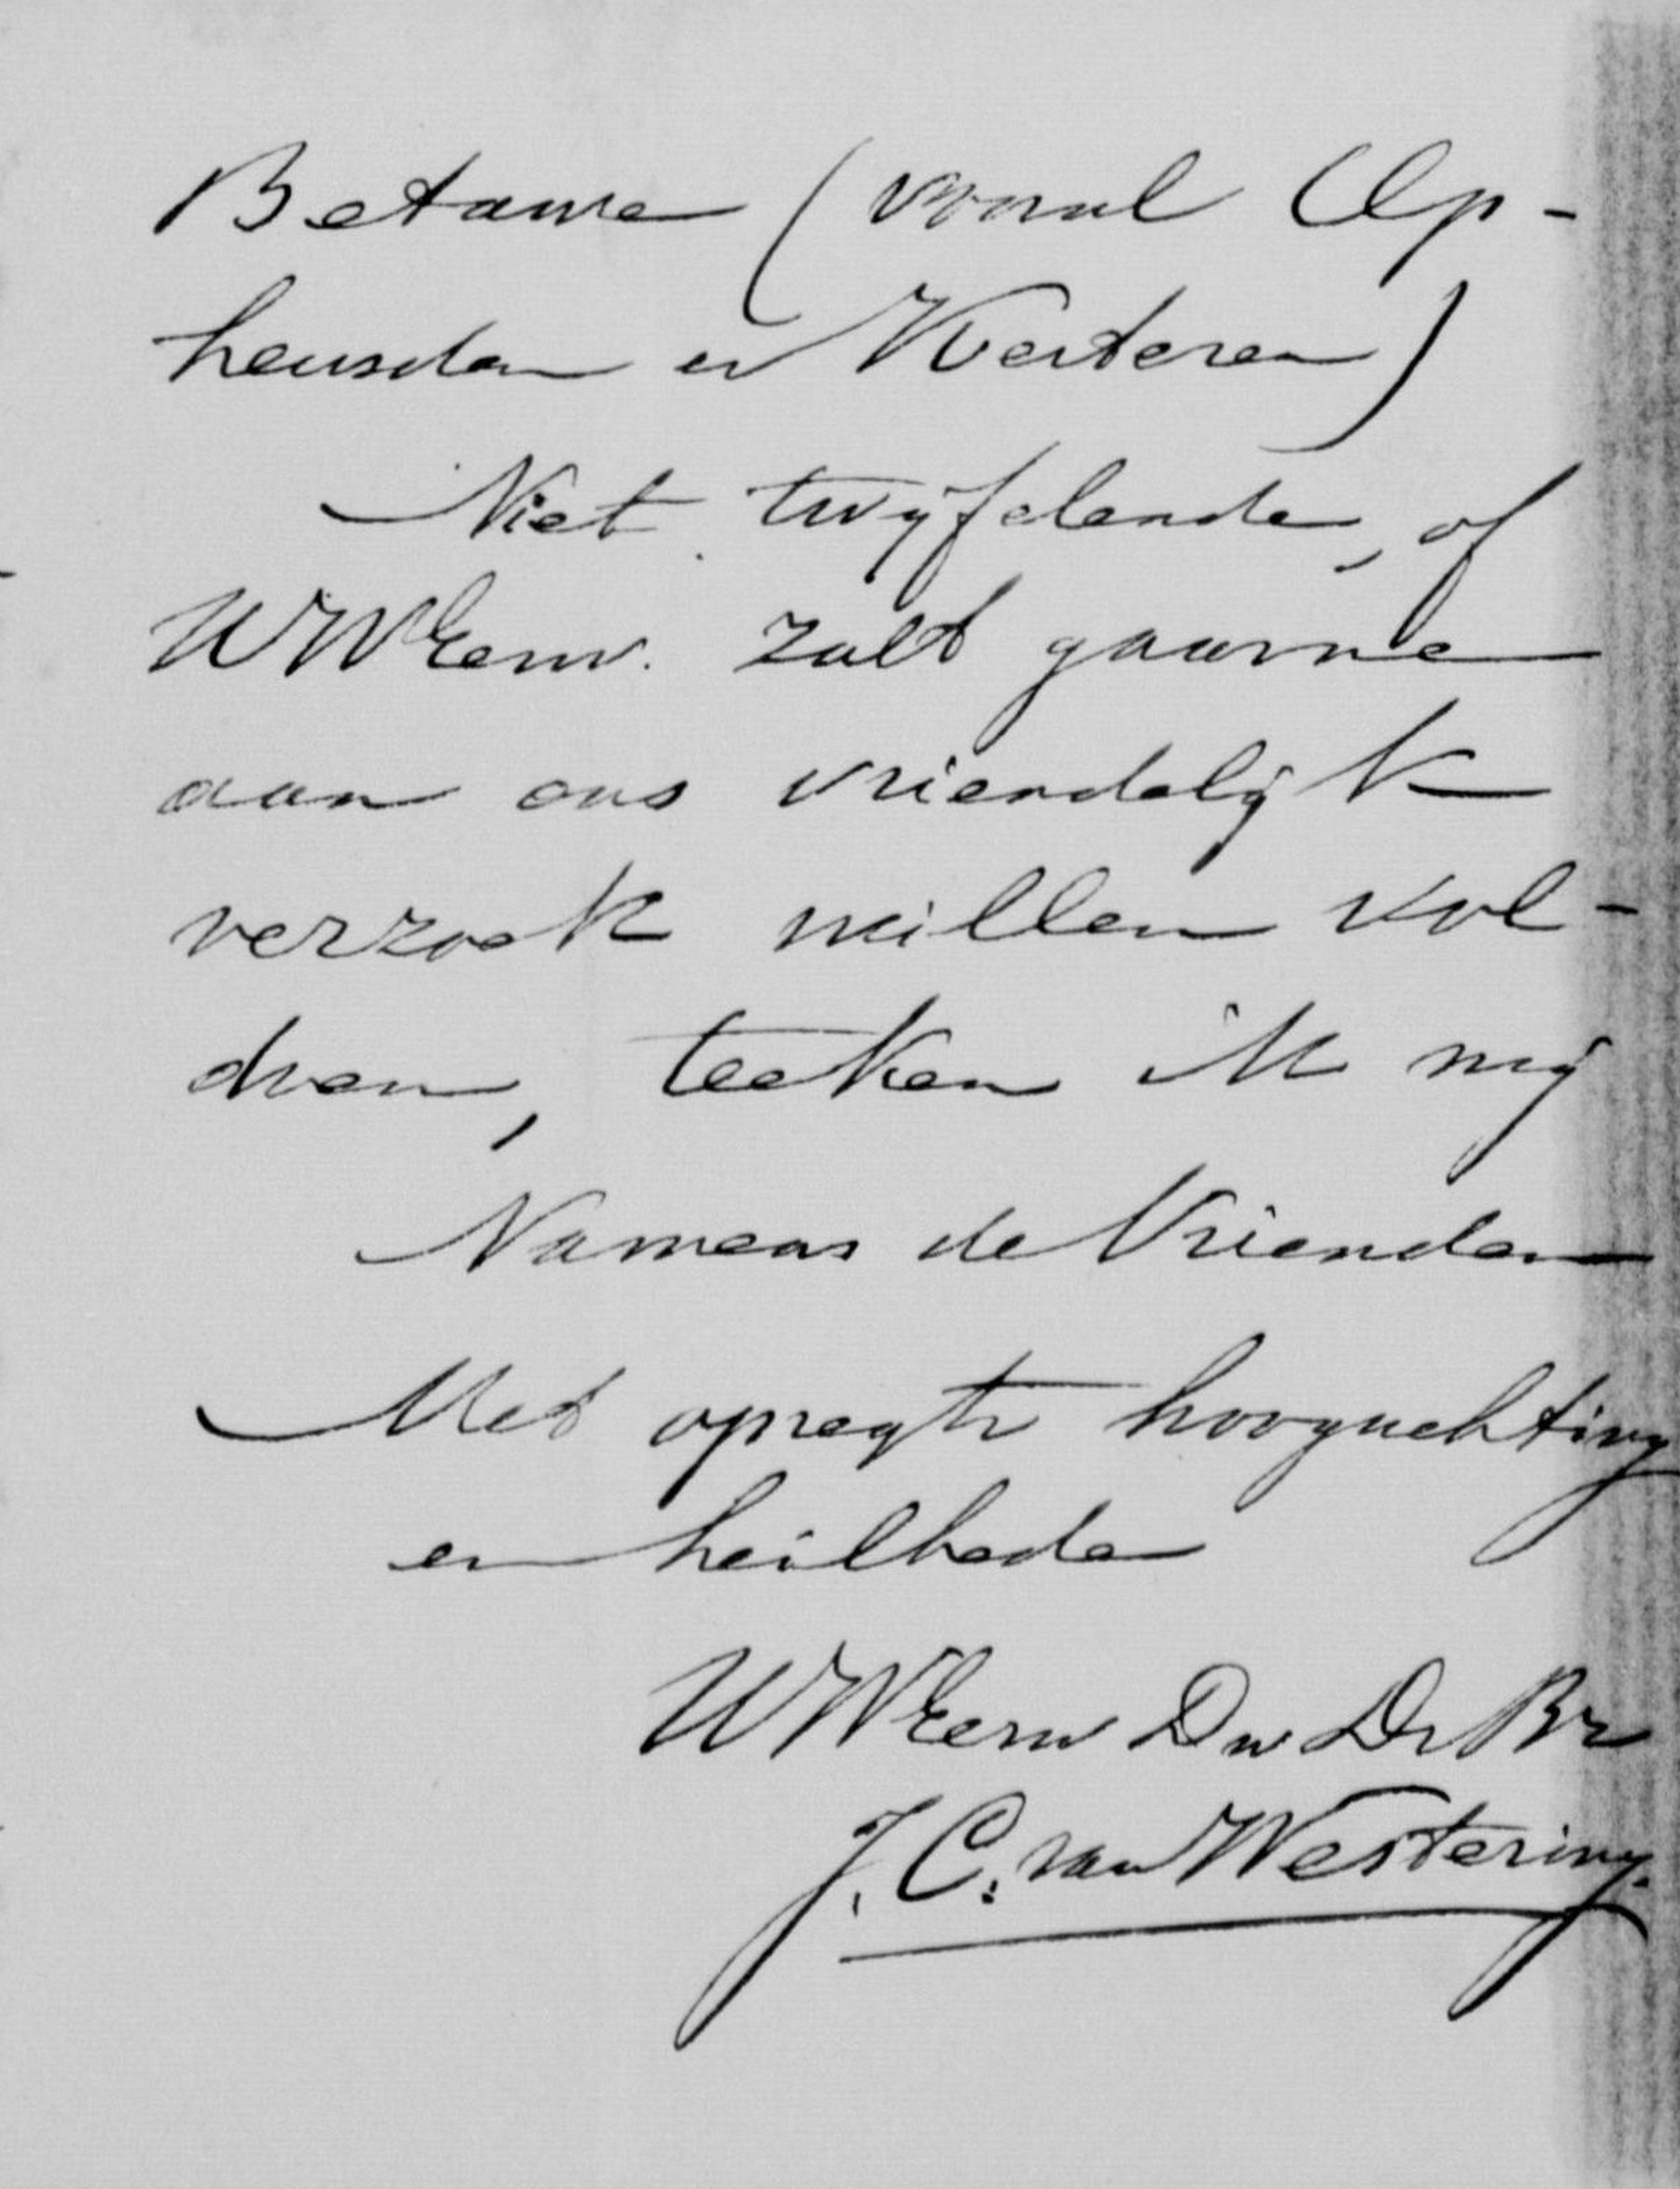 Betuwe (vooral Op-
heusden en Kesteren)
Niet twijfelende, of
UWEerw. zult gaarne
aan ons vriendelijk
verzoek willen vol-
doen, teeken ik mij
Namens de Vrienden
Met opregte hoogachting
en heilbede
UWEerw Dw Dr Br
J. C. van Westering.